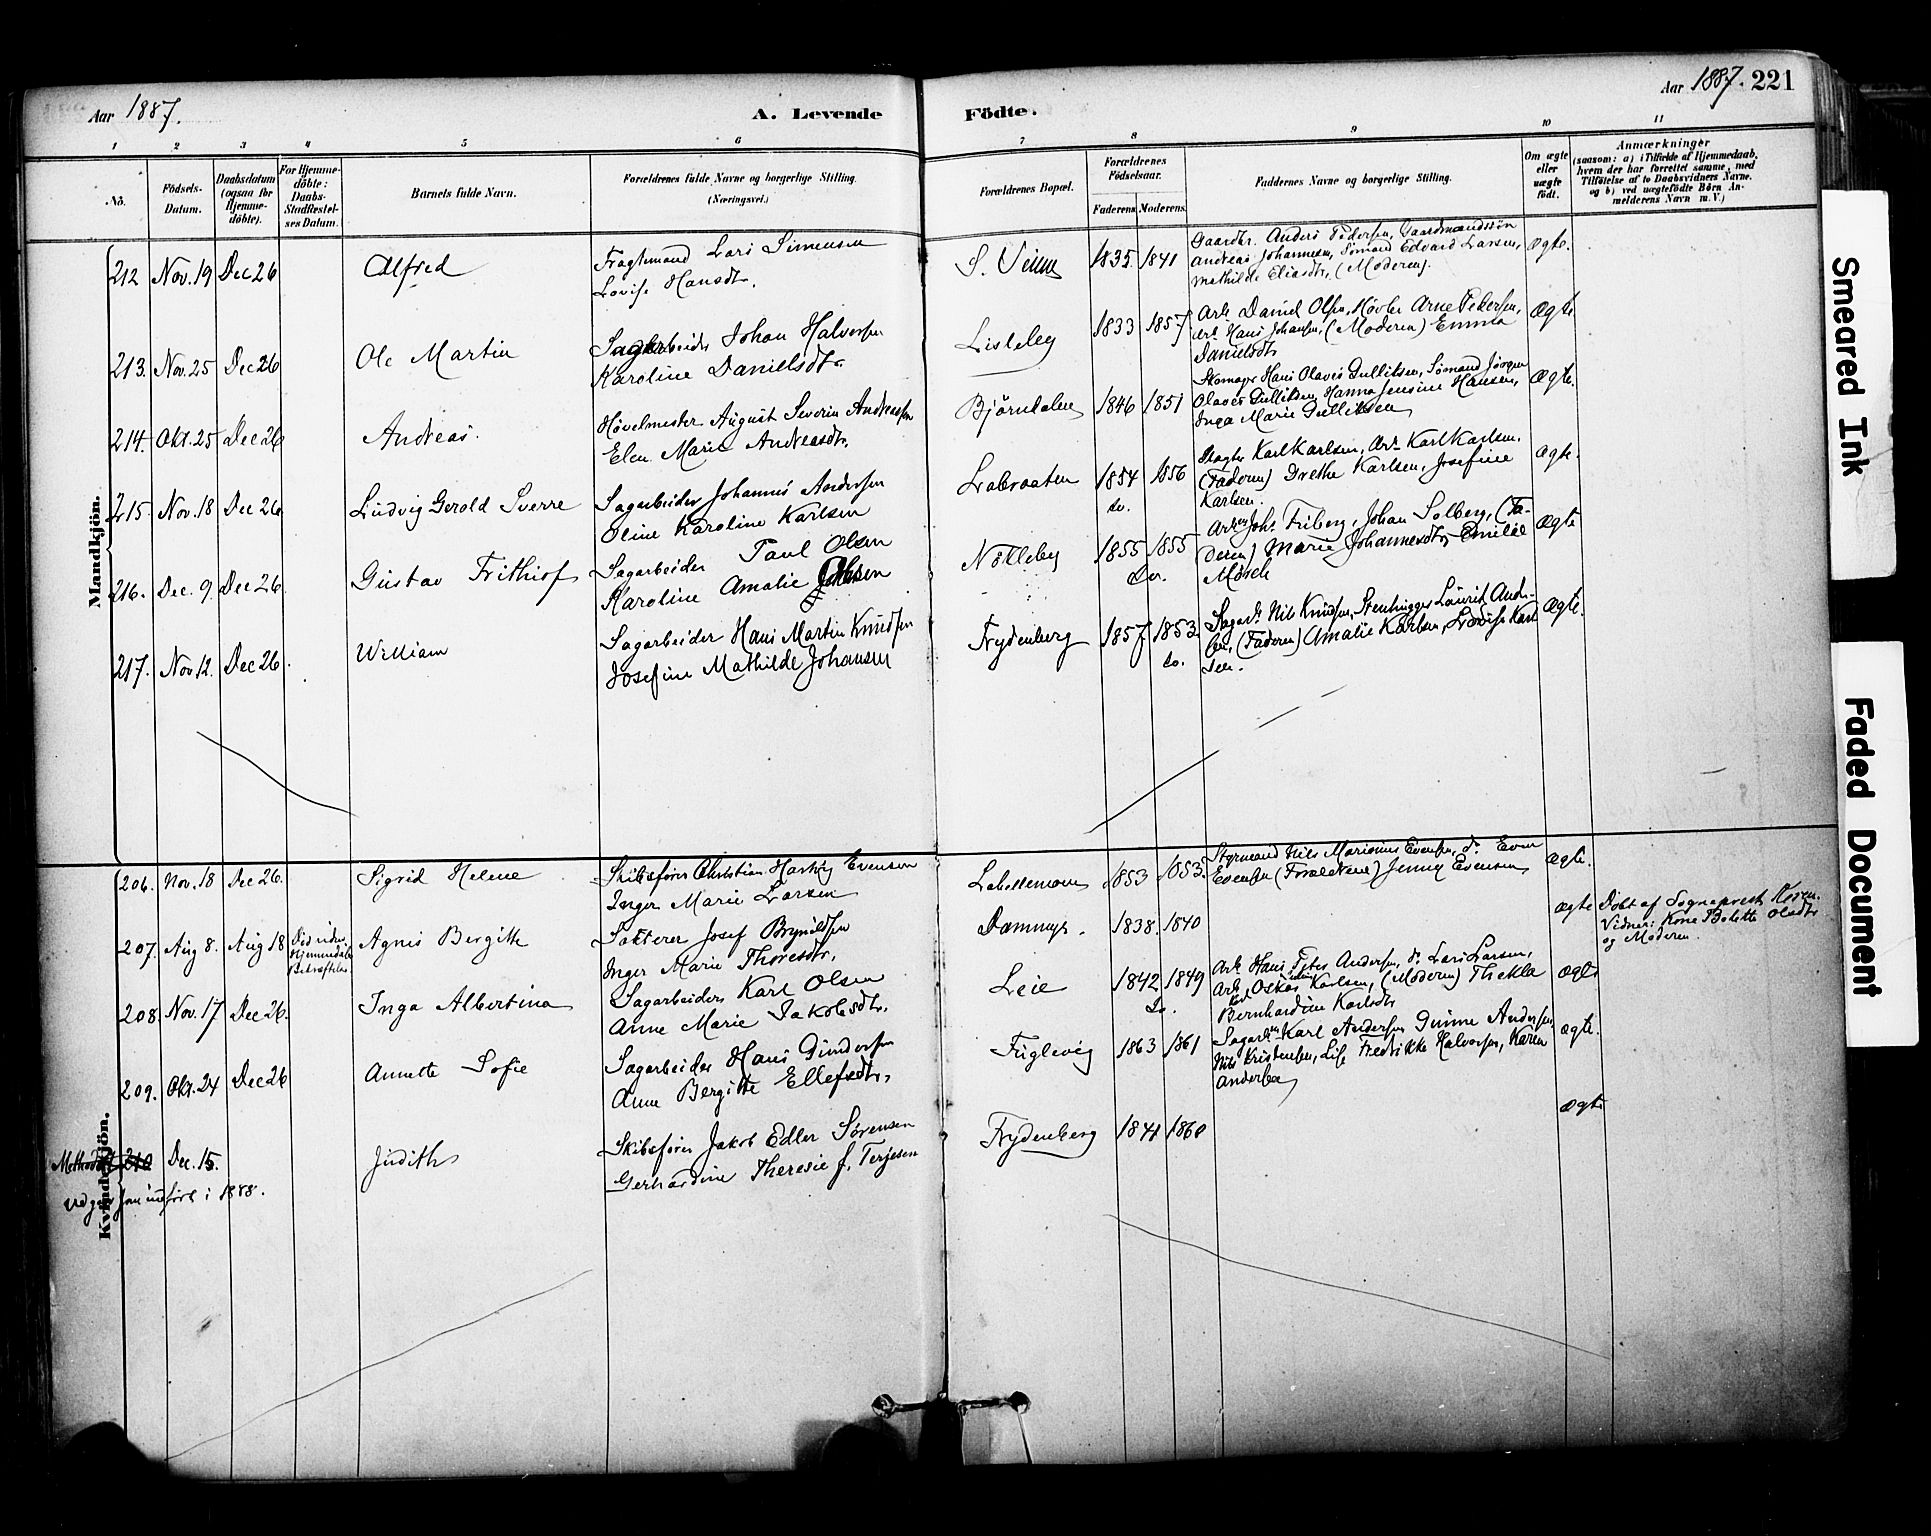 Aar 1887.
A. Levende
Födte.
Aar 1887. 221
1 2 3 4 5 6 7 8 9 10 11
No.
Födsels-Datum.
Daabsdatum (ogsaa for Hjemme-döbte).
For Hjemme-döbte: Daabs-Stadfæstel-ses Datum.
Barnets fulde Navn.
Forældrenes fulde Navne og borgerlige Stilling.
(Næringsvei.)
Forældrenes Bopæl.
Forældrenes Födselsaar.
Faderens Moderens.
Faddernes Navne og borgerlige Stilling.
Om ægte eller uægte födt.
Anmærkninger
(saasom: a) i Tilfælde af Hjemmedaab,
hvem der har forrettet samme, med
Tilföielse af to Daabsvidners Navne,
og b) ved uægtefödte Börn An-
melderens Navn m. V.)
Mandkjön.
212 Nov. 19 Dec 26 Alfred
Fragtmand Lars Simensen
Lovise Hansdtr.
1835 1841
Gaardbr. Anders Pedersen, Gaardmandssön
Andreas Johannesen, Sömand Edvard Larsen,
Mathilde Eliasdtr, (Moderen).
ægte.
213. Nov. 25 Dec 26 Ole Martin
Sagarbeider Johan Halvorsen
Karoline Danielsdtr.
Lisleby 1833 1857
Arb. Daniel Olsen, Høvler Arne Pedersen,
Arb. Hans Johansen, (Moderen) Emma
Danielsdtr
ægte
214. Okt. 25 Dec 26 Andreas.
Hövelmester August Severin Andreassen
Elen Marie Andreasdtr.
Björndalen 1846 1851
Skomager Hans Olaves Gulliksen, Sömand Jörgen
Olaves Gulliksen, Hanna Jensine Hansen,
Inga Marie Gulliksen
ægte.
215. Nov. 18 Dec 26 Ludvig Gerold Sverre
Sagarbeider Johannes Andersen
Oline Karoline Karlsen
Labraaten 1854 1856
do.
Slagter Karl Karlsen, Arb. Karl Karlsen,
(Faderen) Drethe Karlsen, Josefine
Karlsen.
ægte.
216. Dec. 9. Dec 26. Gustav Frithiof
Sagarbeider Paul Olsen
Karoline Amalie Olsen
Nötteby 1855 1855
Do.
Arb. Johs. Friberg, Johan Solberg, (Fa-
deren) Marie Johannesdtr, Emilie
Mösch
ægte
217. Nov 12. Dec 26. William
Sagarbeider Hans Martin Knudsen
Josefine Mathilde Johansen
Frydenberg 1857 1853.
do.
Sagarb. Nils Knudsen, Stenhugger Laurits Ander-
sen, (Faderen) Amalie Karlsen, Lovise Karl-
sen.
ægte.
Kvindekjön.
206. Nov. 18 Dec 26. Sigrid Helene
Skibsförer Christian Hartvig Evensen
Inger Marie Larsen
1853 1853.
Styrmand Nils Marionus Evensen, do Even
Evensen (Forældrene) Jenny Evensen
ægte.
207. Aug 8. Aug 18 Agnes Bergitte
Josef Brynildsen
Inger Marie Thoresdtr.
Dammyr. 1838. 1840
ægte
Döbt af Sognepræst
Vidner: Kone Bolette Olsdtr
og Moderen.
208. Nov. 17 Dec 26. Inga Albertina
Sagarbeider Karl Olsen
Anne Marie Jakobsdtr.
Leie 1842 1849
Do.
Arb. Hans Peter Andersen, do Lars Larsen,
Arb. Oskar Karlsen, (Moderen) Thekla
Bernhardine Karlsdtr
ægte
209. Okt. 24 Dec 26 Annette Sofie
Sagarbeider Hans Gundersen
Anne Bergitte Ellefsdtr.
Fuglevig 1863 1861
Sagarb. Karl Andersen Andersen,
Nils Kristensen, Lise Fredrikke Halvorsen, Karen
Andersen
ægte.
210 Dec. 15. Judith
Skibsförer Jakob Edler Sörensen
Gerhardine Theresie f. Terjesen
Frydenberg 1841 1860
ægte
i 1888.
Smeared Ink
Faded Document